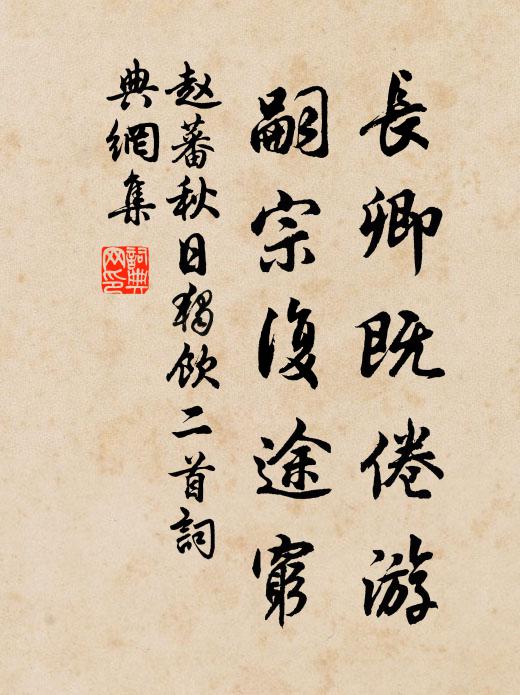 長卿既倦游
嗣宗復途窮
赵蕃秋日独飲二首詞
典網集
詞典
网印